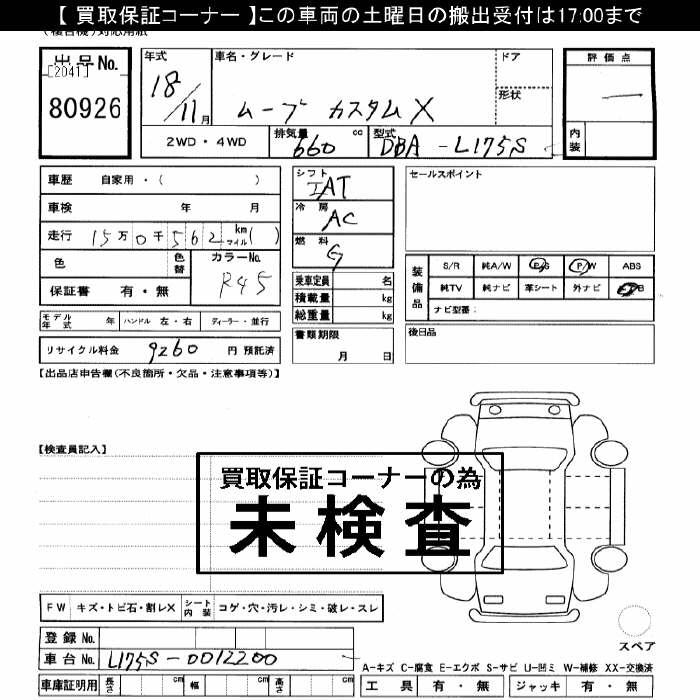 【 買取保証コーナー 】この車両の土曜日の搬出受付は17:00まで
出品No.
[2041]
80926
年式
18/11月
車名・グレード
ムーブ カスタムX
ドア
形状
2WD・4WD
排気量
660 cc
型式
DBA-L175S
評価点
内装
車歴 自家用・( )
車検 年 月
走行 15万0千562 km マイル( )
色
色替
カラーNo.
R45
保証書 有・無
モデル年式 年 ハンドル 左・右 ディーラー・並行
リサイクル料金 9260 円 預託済
シフト
IAT
冷房
AC
燃料
G
乗車定員 名
積載量 kg
総重量 kg
書類期限
月 日
セールスポイント
装備品
S/R 純A/W P/S P/W ABS
純TV 純ナビ 革シート 外ナビ
ナビ型番：
後日品
【出品店申告欄(不良箇所・欠品・注意事項等)】
【検査員記入】
買取保証コーナーの為
未検査
FW キズ・トビ石・割レX シート内装 コゲ・穴・汚レ・シミ・破レ・スレ
登録 No.
車台 No. L175S-0012200
車庫証明用 長さ cm 幅 cm 高さ cm
スペア
A-キズ C-腐食 E-エクボ S-サビ U-凹ミ W-補修 XX-交換済
工具 有・無 ジャッキ 有・無